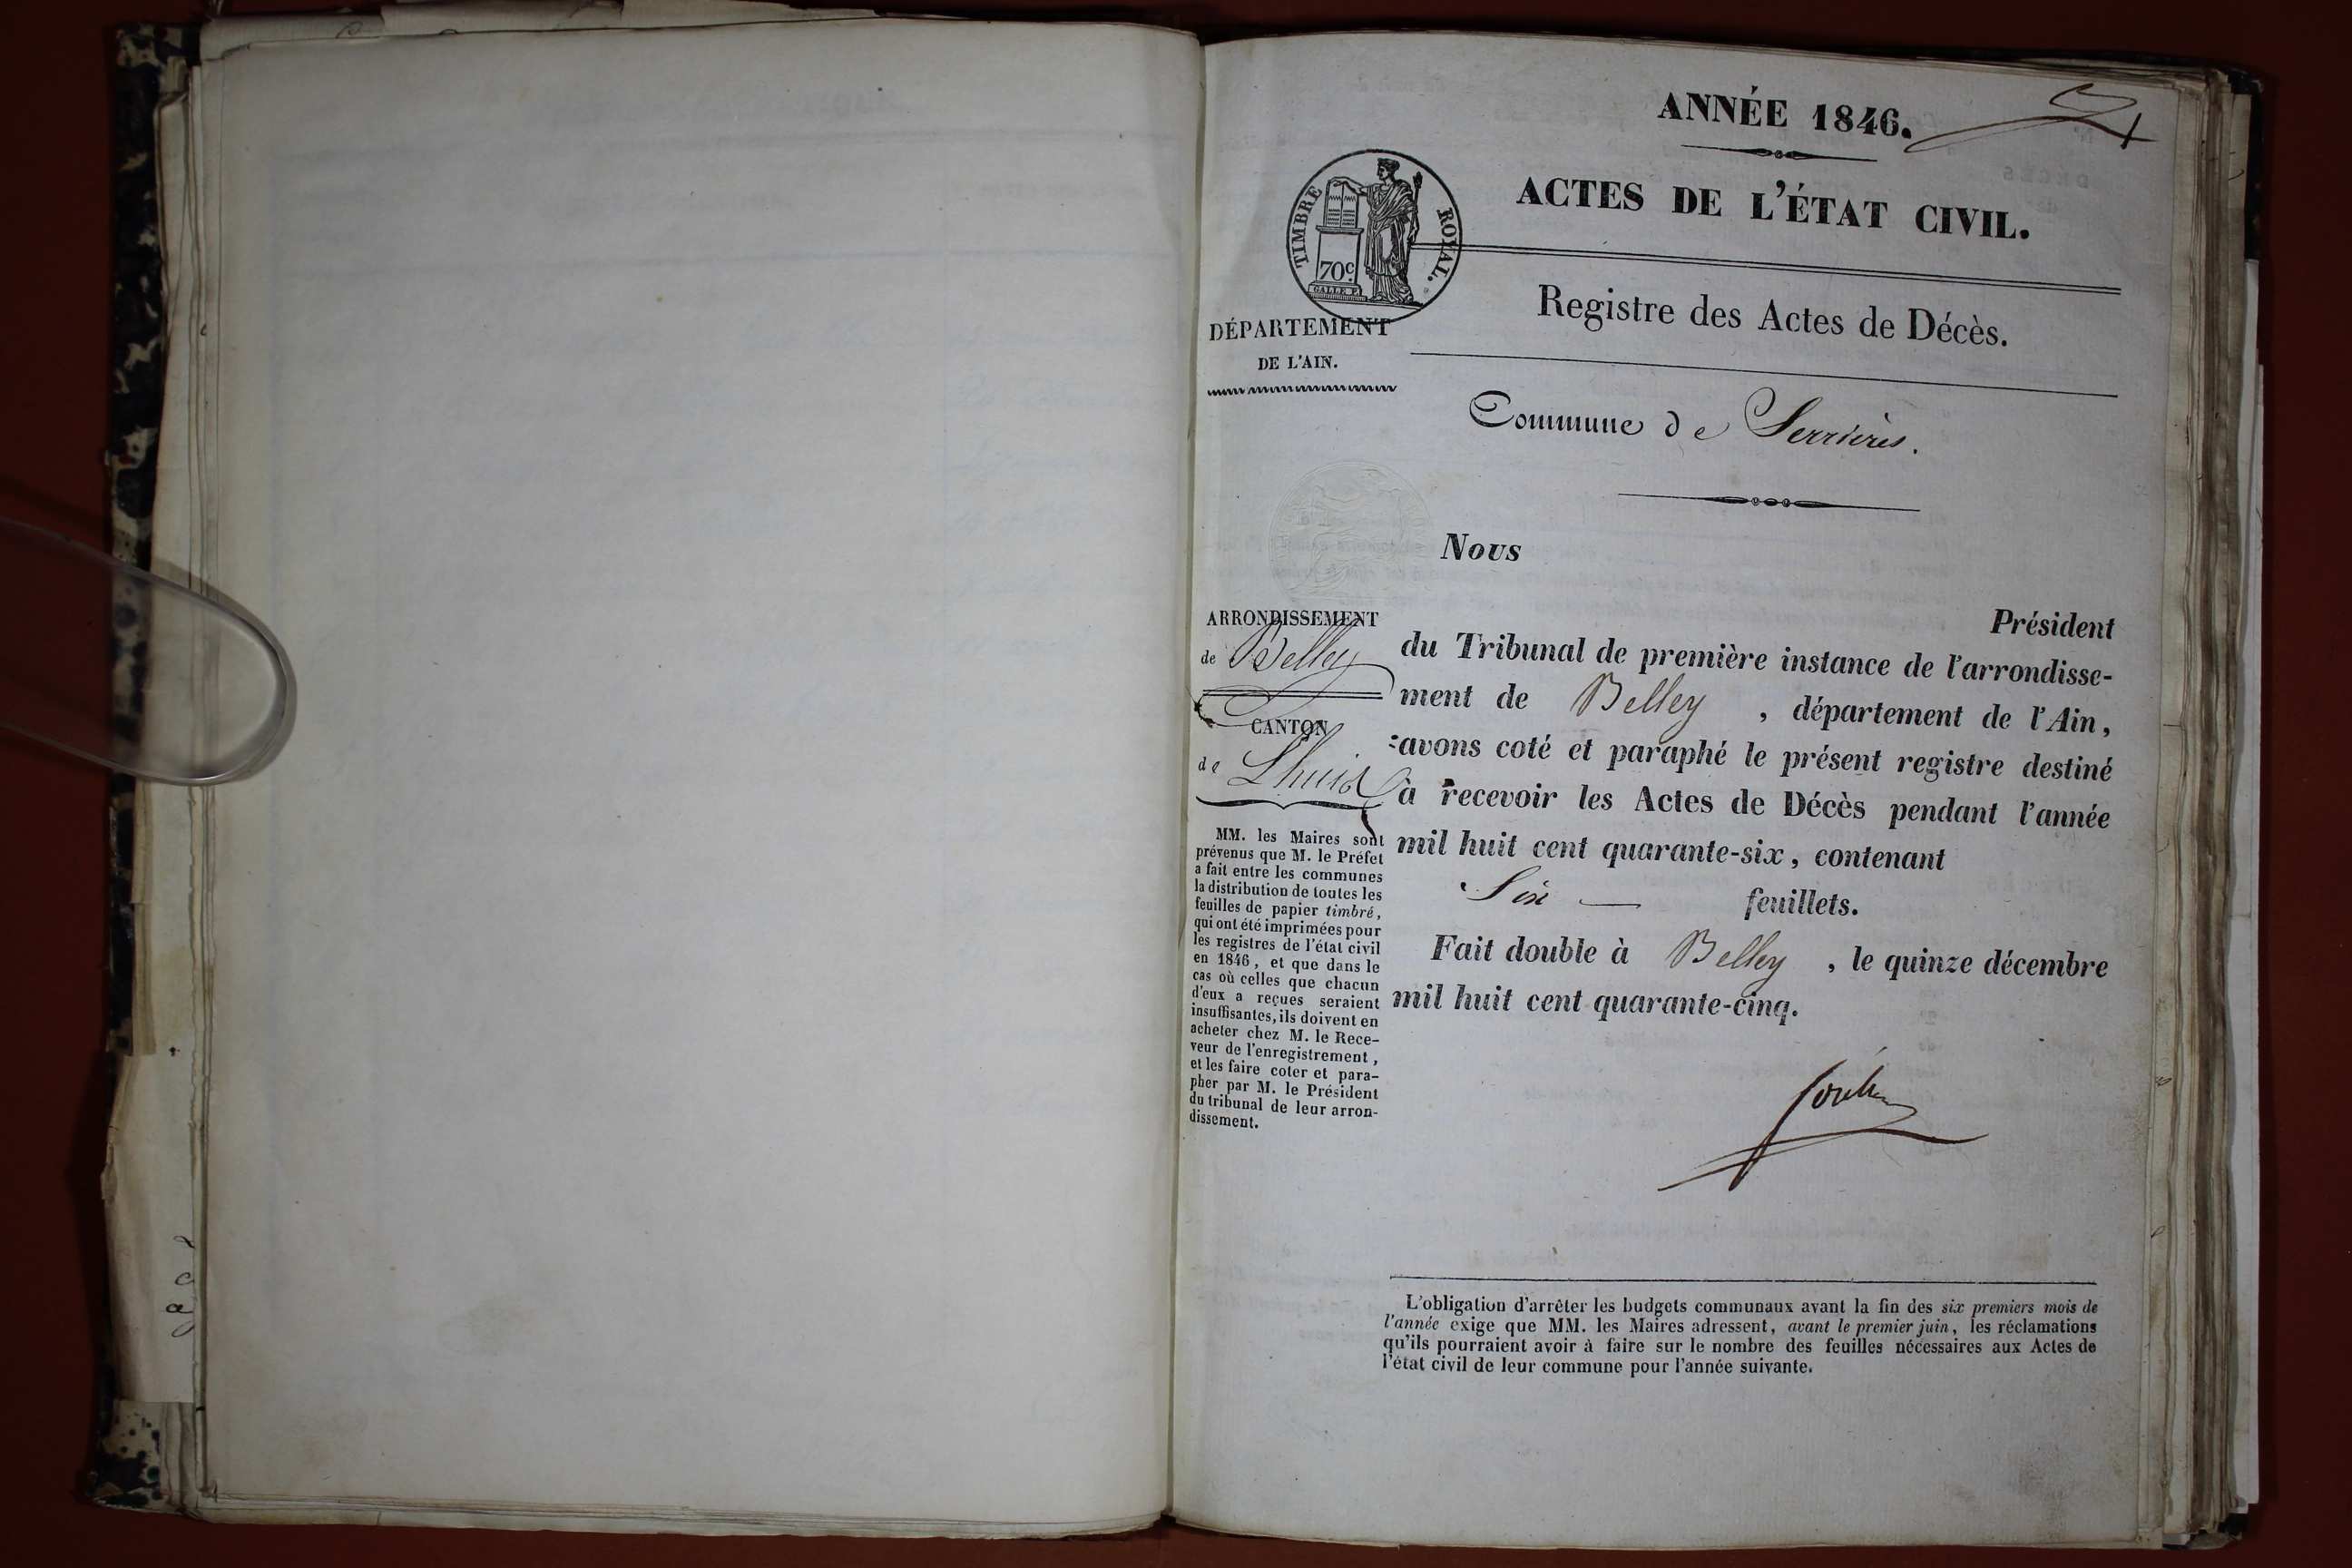 ANNÉE 1846.
ACTES DE L'ÉTAT CIVIL.
TIMBRE ROYAL.
70c
GALLE F.
Registre des Actes de Décès.
DÉPARTEMENT
DE L'AIN.
Commune de Serrières.
Nous
Président
du Tribunal de première instance de l'arrondisse-
ment de Belley , département de l'Ain,
avons coté et paraphé le présent registre destiné
à recevoir les Actes de Décès pendant l'année
mil huit cent quarante-six, contenant
Six — feuillets.
Fait double à Belley , le quinze décembre
mil huit cent quarante-cinq.
ARRONDISSEMENT
de Belley
CANTON
de Lhuis
MM. les Maires sont
prévenus que M. le Préfet
a fait entre les communes
la distribution de toutes les
feuilles de papier timbré,
qui ont été imprimées pour
les registres de l'état civil
en 1846, et que dans le
cas où celles que chacun
d'eux a reçues seraient
insuffisantes, ils doivent en
acheter chez M. le Rece-
veur de l'enregistrement,
et les faire coter et para-
pher par M. le Président
du tribunal de leur arron-
dissement.
L'obligation d'arrêter les budgets communaux avant la fin des six premiers mois de
l'année exige que MM. les Maires adressent, avant le premier juin, les réclamations
qu'ils pourraient avoir à faire sur le nombre des feuilles nécessaires aux Actes de
l'état civil de leur commune pour l'année suivante.